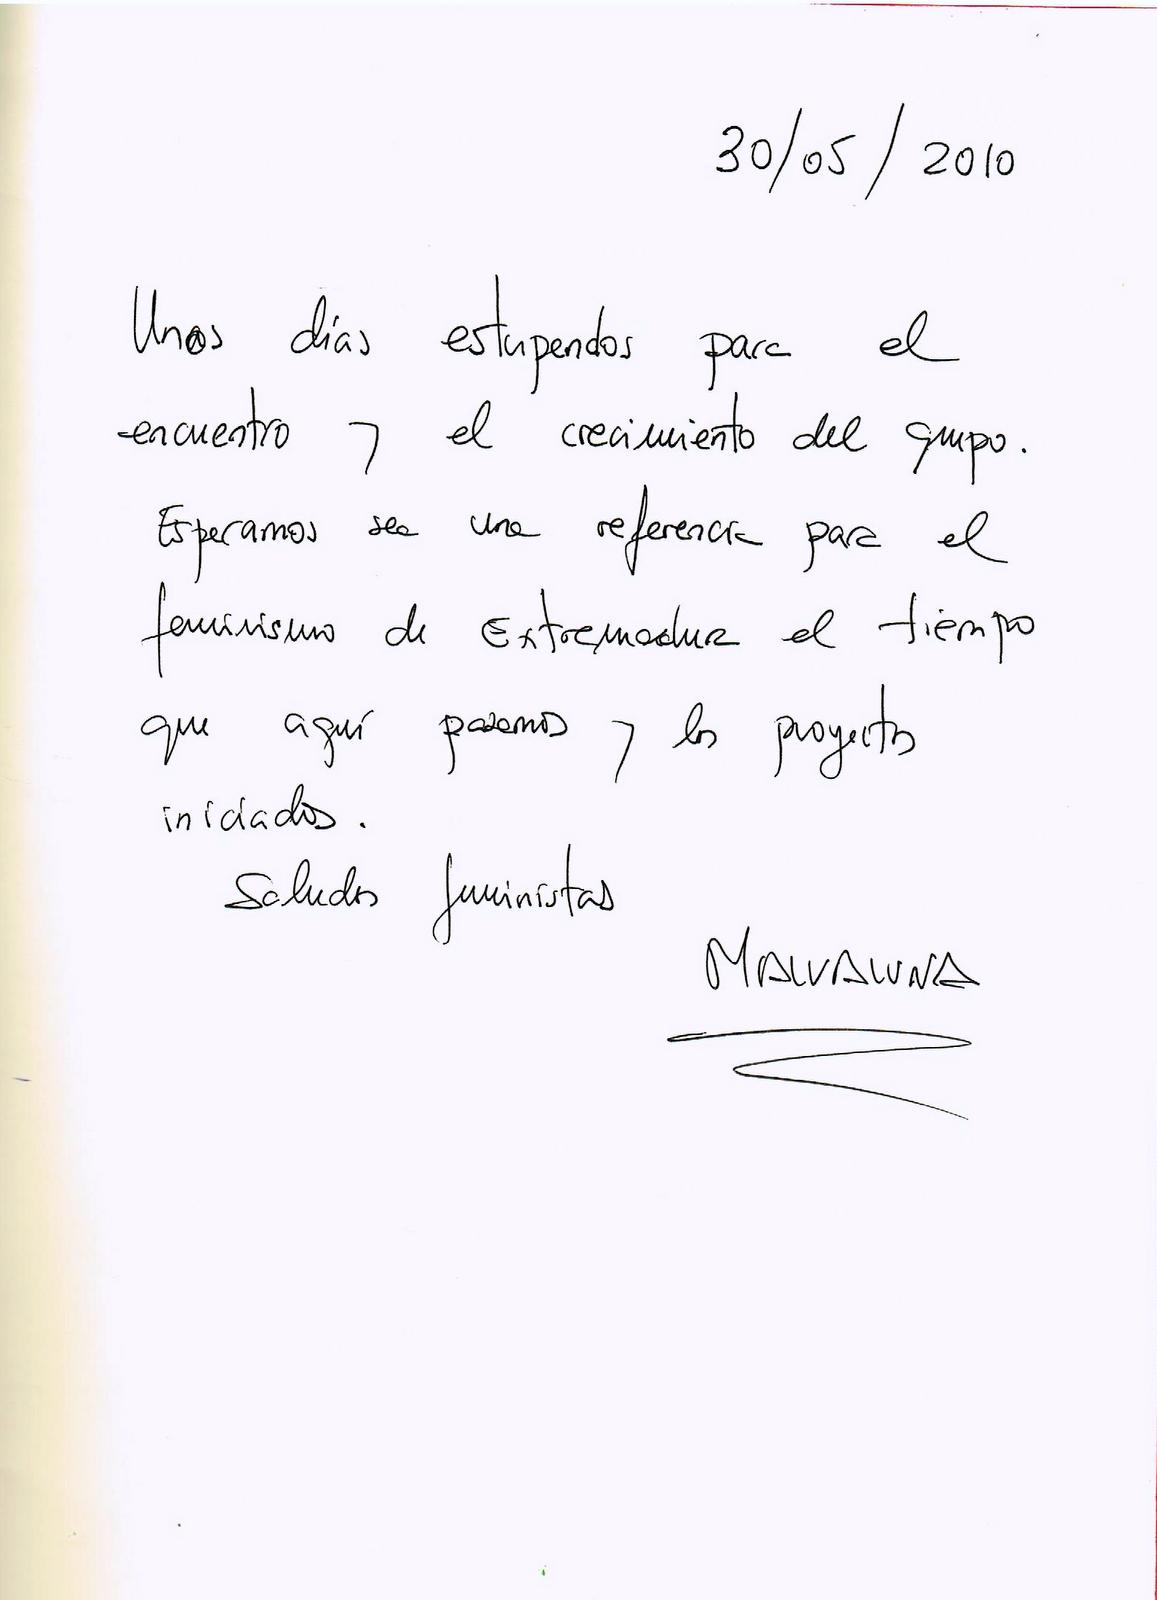 30/05/2010
Unos días estupendos para el
encuentro y el crecimiento del grupo.
Esperamos sea una referencia para el
feminismo de Extremadura el tiempo
que aquí pasemos y los proyectos
iniciados.
Saludos feministas
MALVALUNA